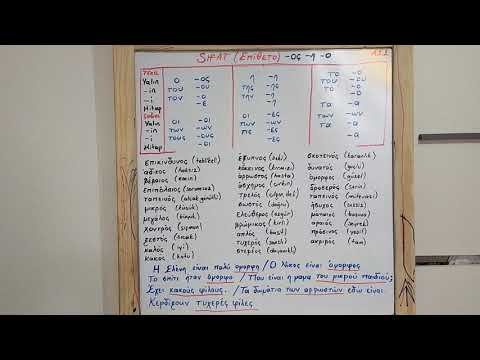 SIFAT (Επίθετο) -ος -η -ο
A2.1
TEKİL
Yalın ο -ος η -η το -ο
-in του -ου της -ης του -ου
-i τον -ο την -η το -ο
Hitap -ε -η -ο
Yalın οι -οι οι -ες τα -α
-in των -ων των -ων των -ων
-i τους -ους τις -ες τα -α
Hitap -οι -ες -α
επικίνδυνος (tehlikeli) έξυπνος (zeki) σκοτεινός (karanlık)
άδικος (haksız) κόκκινος (kırmızı) δυνατός (güçlü)
βέβαιος (emin) άρρωστος (hasta) όμορφος (güzel)
επιπόλαιος (sorumsuz) άσχημος (çirkin) δροσερός (serin)
ταπεινός (alçak gönüllü) τρελός (çılgın, deli) ταπεινός (mütevazi)
μικρός (küçük) σωστός (doğru) ήσυχος (sessiz)
μεγάλος (büyük) ελεύθερος (özgür) μάταιος (boşuna)
χοντρός (şişman) βρώμικος (kirli) αραιός (seyrek)
ζεστός (sıcak) απλός (basit) πράσινος (yeşil)
καλός (iyi) τυχερός (şanslı) ακριβός (tam)
κακός (kötü) στερεός (dayanıklı)
Η Ελένη είναι πολύ όμορφη / Ο Νίκος είναι όμορφος
Το σπίτι ήταν όμορφο / Που είναι η μαμά του μικρού παιδιού;
Έχει κακούς φίλους. / Τα δωμάτια των αρρωστών εδώ είναι.
Κερδίζουν τυχερές φίλες